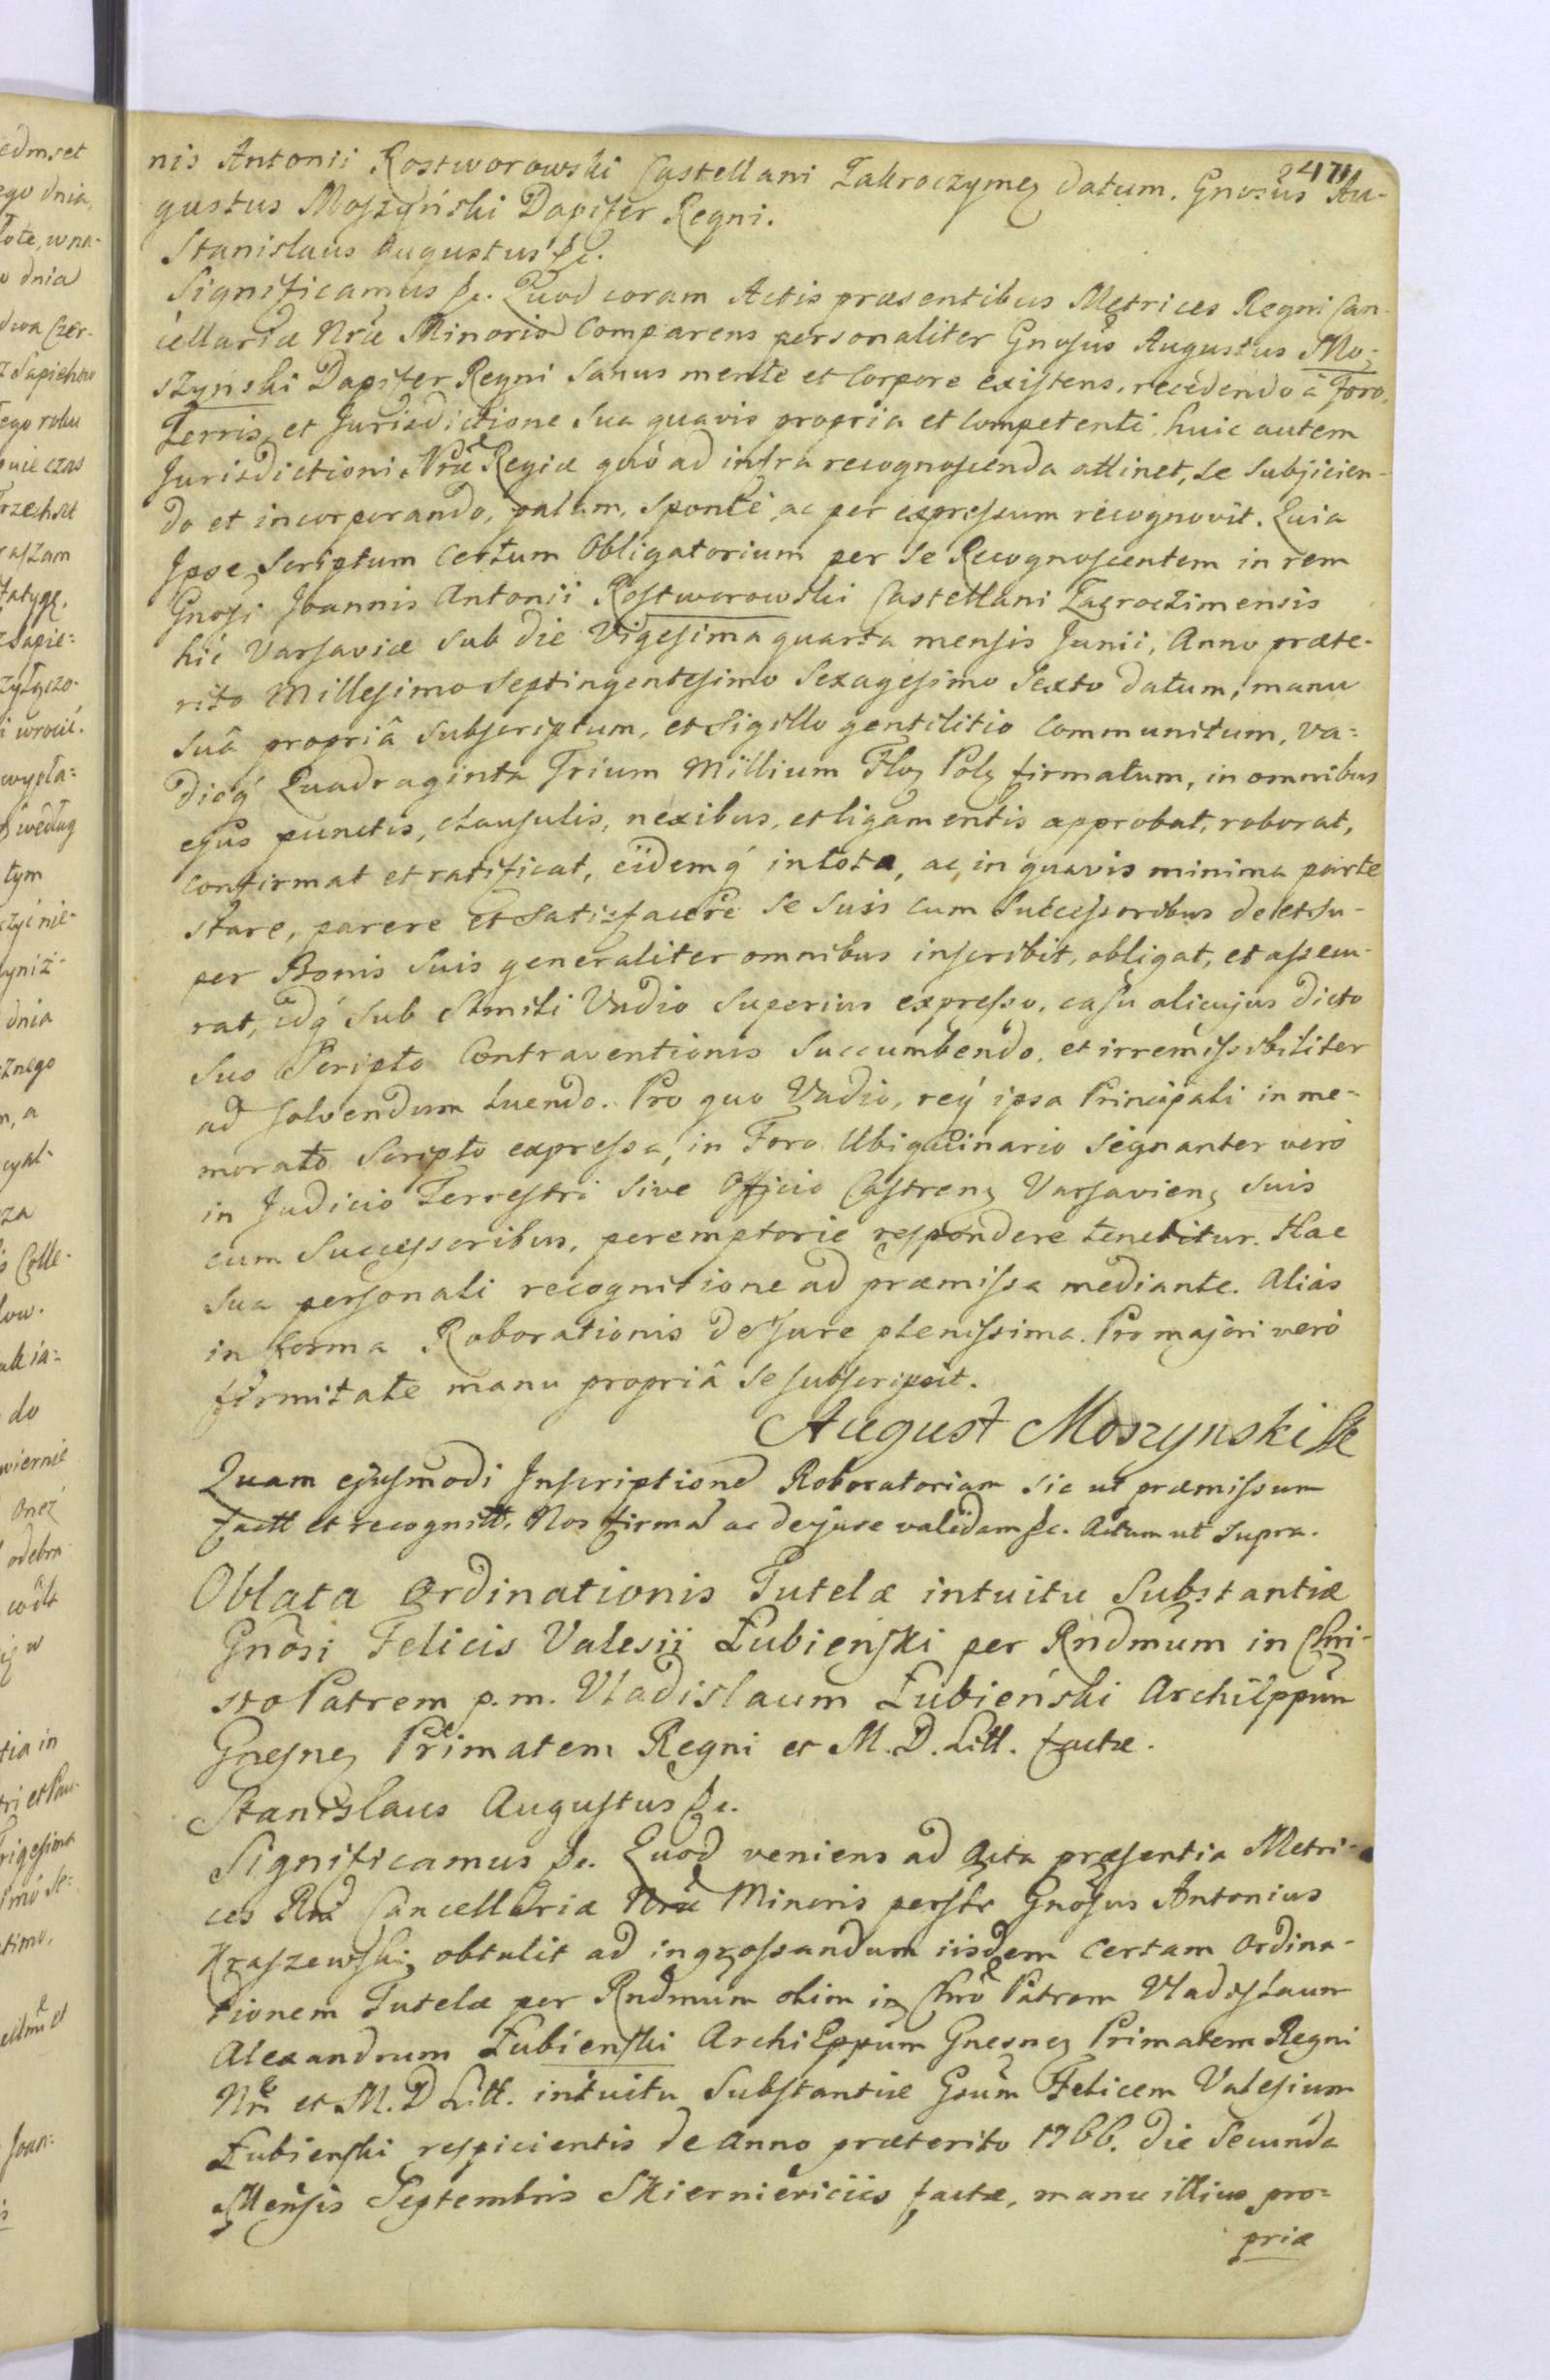 247
nis Antonii Rostworowski Castellani Zakroczymen datum. Gnosus Au-
gustus Moszyński Dapifer Regni.
Stanislaus Augustus &c.
Significamus &c. Quod coram Actis præsentibus Metrices Regni Can-
cellariæ Nræ Minoris Comparens personaliter Gnosus Augustus Mo-
szyński Dapifer Regni Sanus mente et Corpore existens, recedendo à Foro,
Terris et Jurisdictione Sua quavis propria et Competenti huic autem
Jurisdictioni Nræ Regiæ quò ad infra recognoscenda attinet, Se Subjicien-
do et incorporando, palam, Sponte, ac per expressum recognovit. Quia
Ipse Scriptum Certum Obligatorium per Se Recognoscentem in rem
Gnosi Joannis Antonii Rostworowski Castellani Zagroczimensis
hic Varsaviæ Sub die Vigesima quarta mensis Junii, Anno præte-
rito Millesimo Septingentesimo Sexagesimo Sexto datum, manu
Suâ propriâ Subscriptum, et Sigillo gentilitio Communitum, Va-
dioq́ Quadraginta Trium Millium Flor Pol firmatum, in omnibus
ejus punctis, clausulis, nexibus, et ligamentis approbat, roborat,
Confirmat et ratificat, eidemq́ in tota, ac in quavis minima parte
stare, parere et Satisfacere Se Suis cum Successoribus de et Su-
per Bonis Suis generaliter omnibus inscribit, obligat, et assecu-
rat, idq́ Sub Simili Vadio Superius expresso, casu alicujus dicto
Suo Scripto Contraventionis Succumbendo, et irremissibiliter
ad solvendum luendo. Pro quo Vadio, req́ ipsa Principali in me-
morato Scripto expressa, in Foro Ubiquinario Signanter verò
in Judicio Terrestri Sive Officio Castren Varsavien Suis
cum Successoribus, peremptorie respondere tenebitur. Hac
Sua personali recognitione ad præmissa mediante. Aliàs
in forma Roborationis de Jure plenissima. Pro majori verò
firmitate manu propriâ Se subscripsit.
August Moszynski
Quam ejusmodi Inscriptione Roboratoriam Sic ut præmissum
factt et recognitt. Nos firma ac de jure validam &c. Actum ut Supra.
Oblata Ordinationis Tutelæ intuitu Substantiæ
Gnosi Felicis Valesii Łubieński per Rndmum in Chri-
sto Patrem p.m. Vladislaum Łubieński Archieppum
Gnesnen Primatem Regni et M. D. Litt. factæ.
Stanislaus Augustus &c.
Significamus &c. Quod veniens ad Acta præsentia Metri-
ces Rni Cancellariæ Nræ Minoris perstr Gnosus Antonius
Kraszewski, obtulit ad ingrossandum iisdem Certam Ordina-
tionem Tutelæ per Rndmum olim in Chro Patrem Vladislaum
Alexandrum Łubienski Archi Eppum Gnesnen Primatem Regni
Nri et M. D Litt. intuitu Substantiæ Gsum Felicem Valesium
Łubienski respicientis de Anno præterito 1766. die Secunda
Mensis Septembris Skierniericiis factæ, manu illius pro-
priæ